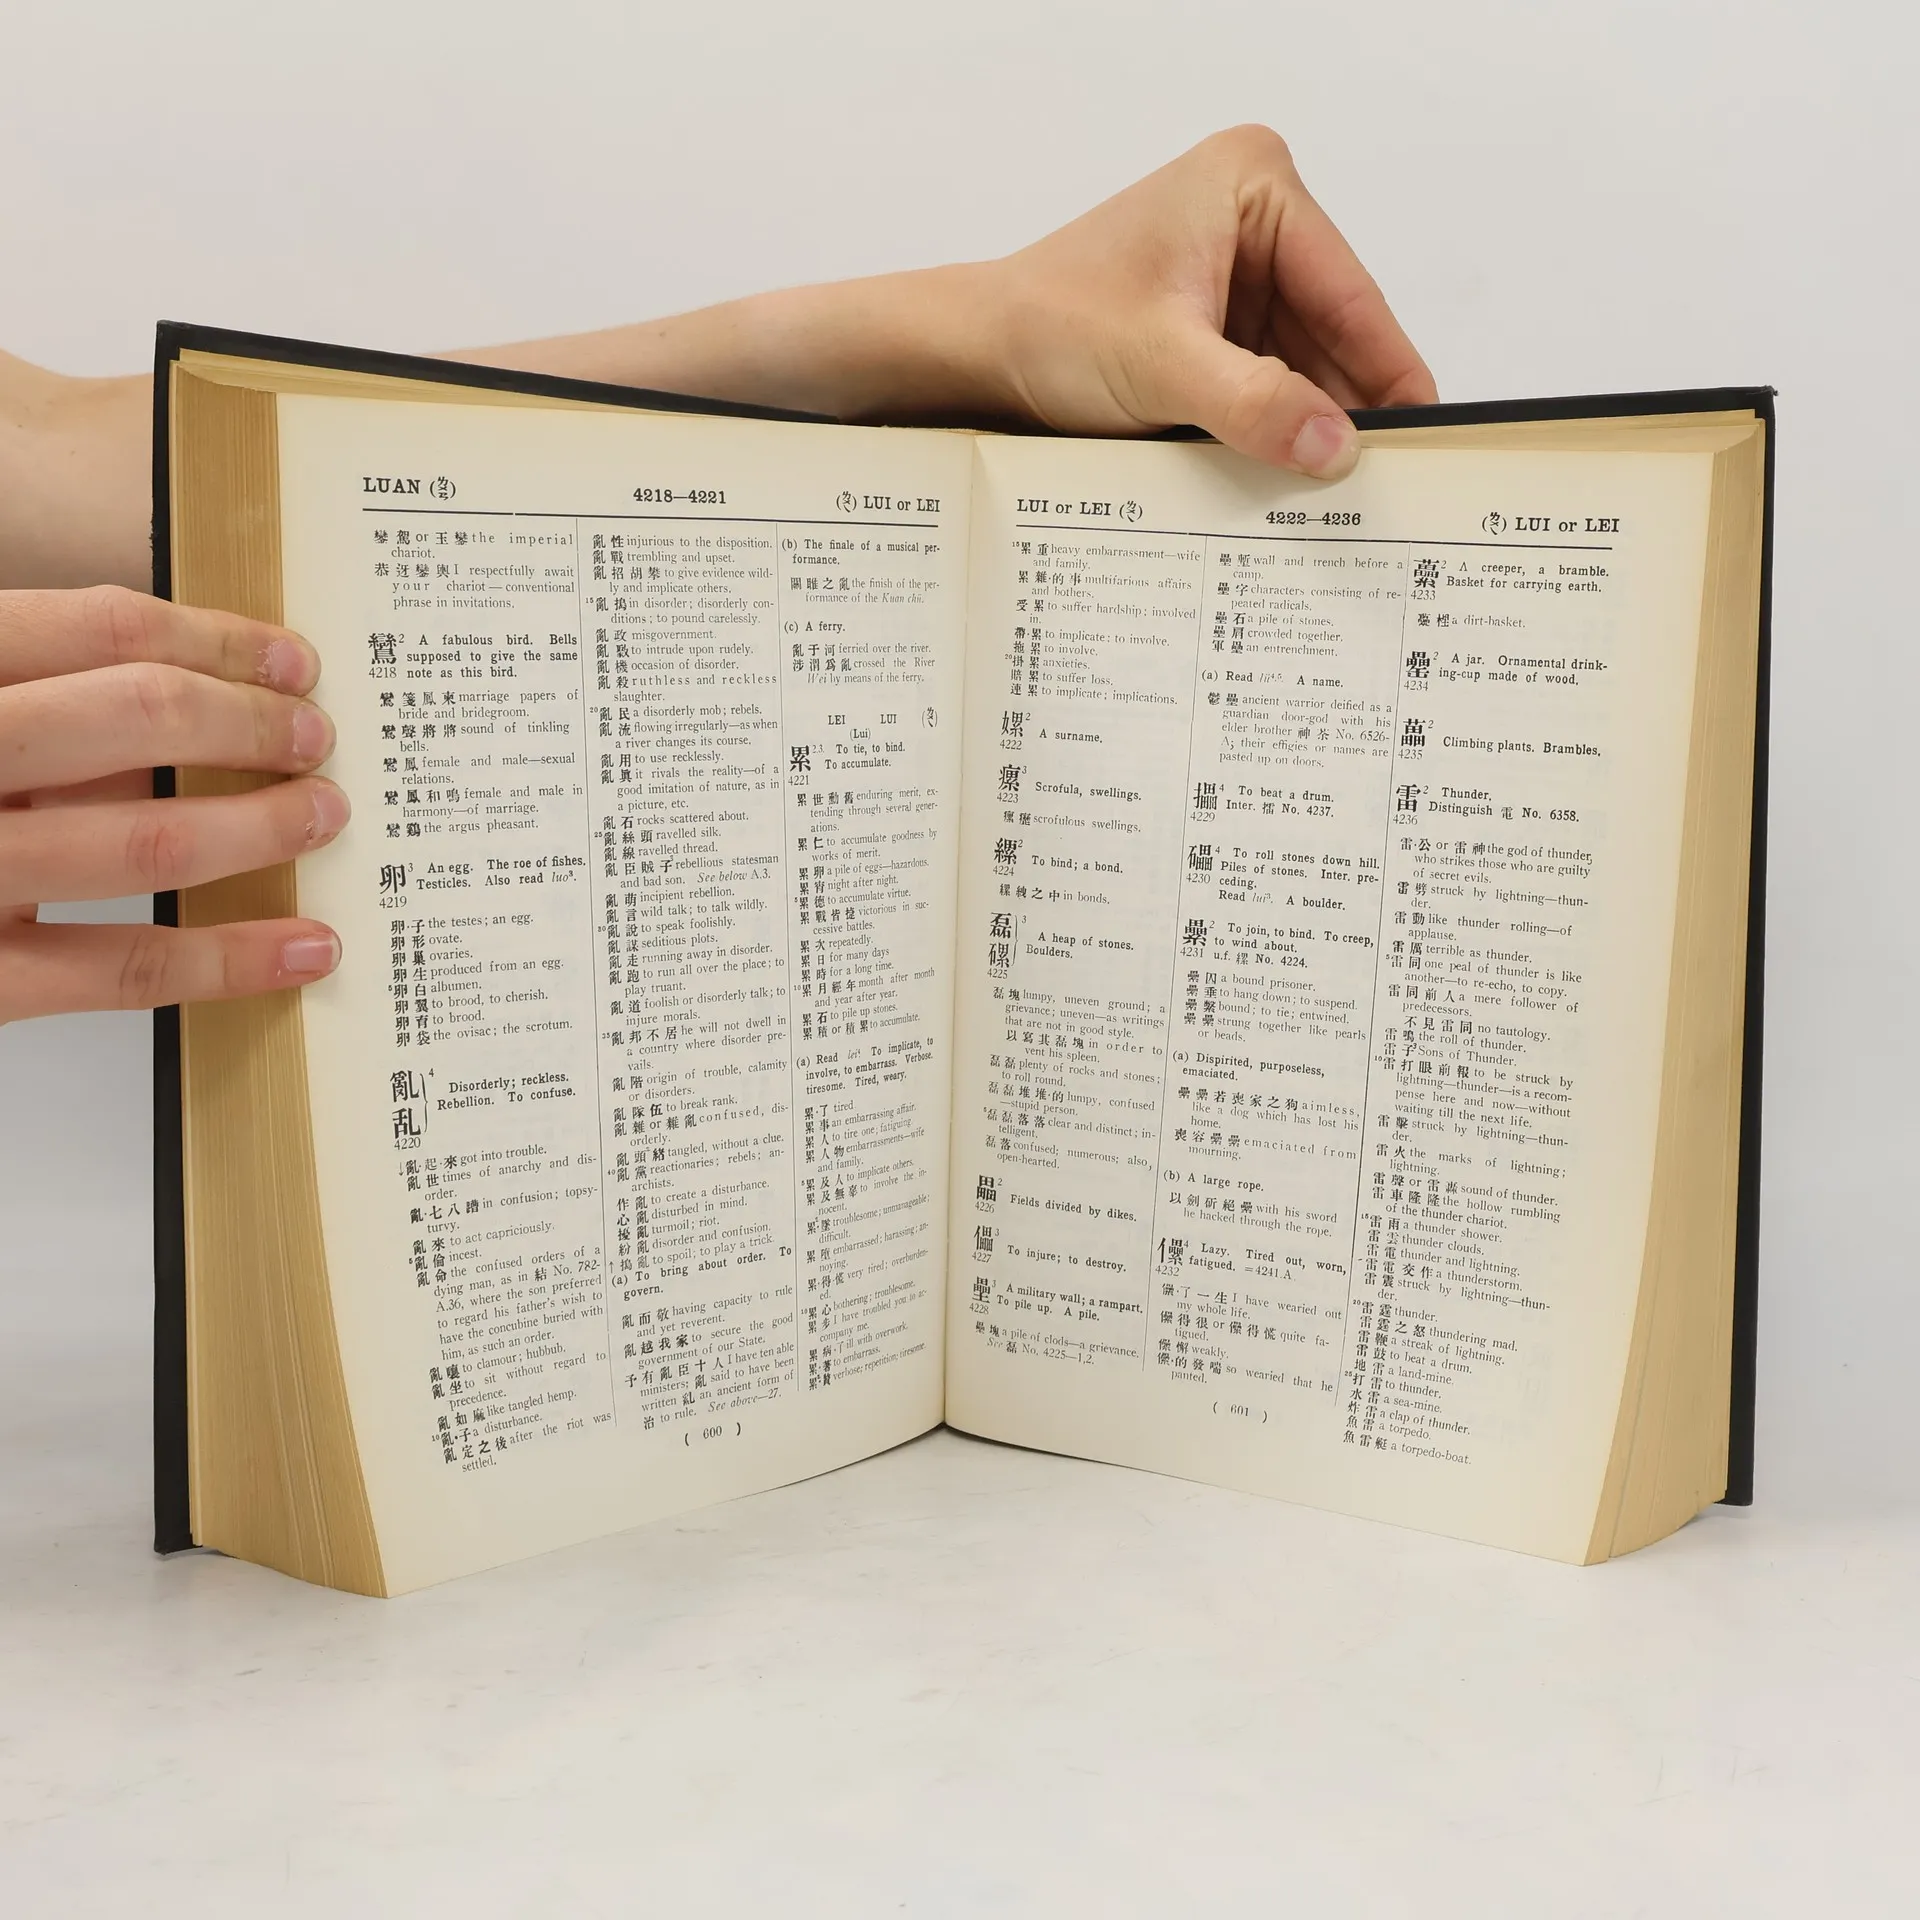 LUAN (ㄌㄨㄢ)
4218—4221
(ㄌㄨㄟ) LUI or LEI
鑾駕 or 玉鑾 the imperial
chariot.
恭迓鑾輿 I respectfully await
your chariot—conventional
phrase in invitations.
鸞2 A fabulous bird. Bells
supposed to give the same
4218 note as this bird.
鸞箋鳳柬 marriage papers of
bride and bridegroom.
鸞聲將將 sound of tinkling
bells.
鸞鳳 female and male—sexual
relations.
鸞鳳和鳴 female and male in
harmony—of marriage.
鸞鷄 the argus pheasant.
卵3 An egg. The roe of fishes.
Testicles. Also read luo3.
4219
卵·子 the testes; an egg.
卵形 ovate.
卵巢 ovaries.
卵生 produced from an egg.
5卵白 albumen.
卵翼 to brood, to cherish.
卵育 to brood.
卵袋 the ovisac; the scrotum.
亂4 Disorderly; reckless.
乱 Rebellion. To confuse.
4220
↓亂·起·來 got into trouble.
亂世 times of anarchy and dis-
order.
亂·七八糟 in confusion; topsy-
turvy.
亂來 to act capriciously.
5亂倫 incest.
亂命 the confused orders of a
dying man, as in 結 No. 782-
A.36, where the son preferred
to regard his father's wish to
have the concubine buried with
him, as such an order.
亂嚷 to clamour; hubbub.
亂坐 to sit without regard to
precedence.
亂如麻 like tangled hemp.
10亂·子 a disturbance.
亂定之後 after the riot was
settled.
亂性 injurious to the disposition.
亂戰 trembling and upset.
亂招胡攀 to give evidence wild-
ly and implicate others.
15亂搗 in disorder; disorderly con-
ditions; to pound carelessly.
亂政 misgovernment.
亂數 to intrude upon rudely.
亂機 occasion of disorder.
亂殺 ruthless and reckless
slaughter.
20亂民 a disorderly mob; rebels.
亂流 flowing irregularly—as when
a river changes its course.
亂用 to use recklessly.
亂眞 it rivals the reality—of a
good imitation of nature, as in
a picture, etc.
亂石 rocks scattered about.
25亂絲頭 ravelled silk.
亂線 ravelled thread.
亂臣賊子 rebellious statesman
and bad son. See below A.3.
亂萌 incipient rebellion.
亂言 wild talk; to talk wildly.
30亂說 to speak foolishly.
亂謀 seditious plots.
亂走 running away in disorder.
亂跑 to run all over the place; to
play truant.
亂道 foolish or disorderly talk; to
injure morals.
35亂邦不居 he will not dwell in
a country where disorder pre-
vails.
亂階 origin of trouble, calamity
or disorders.
亂隊伍 to break rank.
亂雜 or 雜亂 confused, dis-
orderly.
亂頭緒 tangled, without a clue.
40亂黨 reactionaries; rebels; an-
archists.
作亂 to create a disturbance.
心亂 disturbed in mind.
擾亂 turmoil; riot.
紛亂 disorder and confusion.
↑搗亂 to spoil; to play a trick.
(a) To bring about order. To
govern.
亂而敬 having capacity to rule
and yet reverent.
亂越我家 to secure the good
government of our State.
予有亂臣十人 I have ten able
ministers; 亂 said to have been
written 乿 an ancient form of
治 to rule. See above—27.
(b) The finale of a musical per-
formance.
關雎之亂 the finish of the per-
formance of the Kuan chü.
(c) A ferry.
亂于河 ferried over the river.
涉渭爲亂 crossed the River
Wei by means of the ferry.
LEI LUI (ㄌㄟ)
(Lui)
累2.3. To tie, to bind.
To accumulate.
4221
累世勳舊 enduring merit, ex-
tending through several gener-
ations.
累仁 to accumulate goodness by
works of merit.
累卵 a pile of eggs—hazardous.
累宵 night after night.
5累德 to accumulate virtue.
累戰皆捷 victorious in suc-
cessive battles.
累次 repeatedly.
累日 for many days
累時 for a long time.
10累月經年 month after month
and year after year.
累石 to pile up stones.
累積 or 積累 to accumulate.
(a) Read lei4. To implicate, to
involve, to embarrass. Verbose.
tiresome. Tired, weary.
累·了 tired.
累事 an embarrassing affair.
累人 to tire one; fatiguing
累人物 embarrassments—wife
and family.
5累及人 to implicate others.
累及無辜 to involve the in-
nocent.
累·墜 troublesome; unmanageable;
difficult.
累贅 embarrassed; harassing; an-
noying.
累·得慌 very tired; overburden-
ed.
10累心 bothering; troublesome.
累步 I have troubled you to ac-
company me.
累病·了 ill with overwork.
累·著 to embarrass.
累·贅 verbose; repetition; tiresome.
( 600 )
LUI or LEI (ㄌㄟ)
4222—4236
(ㄌㄟ) LUI or LEI
15累重 heavy embarrassment—wife
and family.
累雜·的事 multifarious affairs
and bothers.
受累 to suffer hardship; involved
in.
帶·累 to implicate; to involve.
拖累 to involve.
20掛累 anxieties.
賠累 to suffer loss.
連累 to implicate; implications.
嫘2 A surname.
4222
瘰3 Scrofula, swellings.
4223
瘰癧 scrofulous swellings.
縲2 To bind; a bond.
4224
縲絏之中 in bonds.
磊3 A heap of stones.
磥 Boulders.
4225
磊塊 lumpy, uneven ground; a
grievance; uneven—as writings
that are not in good style.
以寫其磊塊 in order to
vent his spleen.
磊磊 plenty of rocks and stones;
to roll round.
磊磊堆堆·的 lumpy, confused
—stupid person.
5磊磊落落 clear and distinct; in-
telligent.
磊落 confused; numerous; also,
open-hearted.
畾2 Fields divided by dikes.
4226
儡3 To injure; to destroy.
4227
壘3 A military wall; a rampart.
To pile up. A pile.
4228
壘塊 a pile of clods—a grievance.
See 磊 No. 4225—1,2.
壘塹 wall and trench before a
camp.
壘字 characters consisting of re-
peated radicals.
壘石 a pile of stones.
壘肩 crowded together.
軍壘 an entrenchment.
(a) Read lü4,5. A name.
鬱壘 ancient warrior deified as a
guardian door-god with his
elder brother 神荼 No. 6526-
A; their effigies or names are
pasted up on doors.
攂4 To beat a drum.
Inter. 擂 No. 4237.
4229
礧4 To roll stones down hill.
Piles of stones. Inter. pre-
4230 ceding.
Read lui3. A boulder.
纍2 To join, to bind. To creep,
to wind about.
4231 u.f. 縲 No. 4224.
纍囚 a bound prisoner.
纍垂 to hang down; to suspend.
纍繫 bound; to tie; entwined.
纍纍 strung together like pearls
or beads.
(a) Dispirited, purposeless,
emaciated.
纍纍若喪家之狗 aimless,
like a dog which has lost his
home.
喪容纍纍 emaciated from
mourning.
(b) A large rope.
以劍斫絕纍 with his sword
he hacked through the rope.
儽4 Lazy. Tired out, worn,
fatigued. =4241.A.
4232
儽·了一生 I have wearied out
my whole life.
儽得很 or 儽得慌 quite fa-
tigued.
儽懈 weakly.
儽·的發喘 so wearied that he
panted.
虆2 A creeper, a bramble.
Basket for carrying earth.
4233
虆梩 a dirt-basket.
罍2 A jar. Ornamental drink-
ing-cup made of wood.
4234
藟2
Climbing plants. Brambles.
4235
雷2 Thunder.
Distinguish 電 No. 6358.
4236
雷·公 or 雷神 the god of thunder,
who strikes those who are guilty
of secret evils.
雷劈 struck by lightning—thun-
der.
雷動 like thunder rolling—of
applause.
雷厲 terrible as thunder.
5雷同 one peal of thunder is like
another—to re-echo, to copy.
雷同前人 a mere follower of
predecessors.
不見雷同 no tautology.
雷鳴 the roll of thunder.
雷子 Sons of Thunder.
10雷打眼前報 to be struck by
lightning—thunder—is a recom-
pense here and now—without
waiting till the next life.
雷擊 struck by lightning—thun-
der.
雷火 the marks of lightning;
lightning.
雷聲 or 雷轟 sound of thunder.
雷車隆隆 the hollow rumbling
of the thunder chariot.
15雷雨 a thunder shower.
雷雲 thunder clouds.
雷電 thunder and lightning.
雷電交作 a thunderstorm.
雷震 struck by lightning—thun-
der.
20雷霆 thunder.
雷霆之怒 thundering mad.
雷鞭 a streak of lightning.
雷鼓 to beat a drum.
地雷 a land-mine.
25打雷 to thunder.
水雷 a sea-mine.
炸雷 a clap of thunder.
魚雷 a torpedo.
魚雷艇 a torpedo-boat.
( 601 )